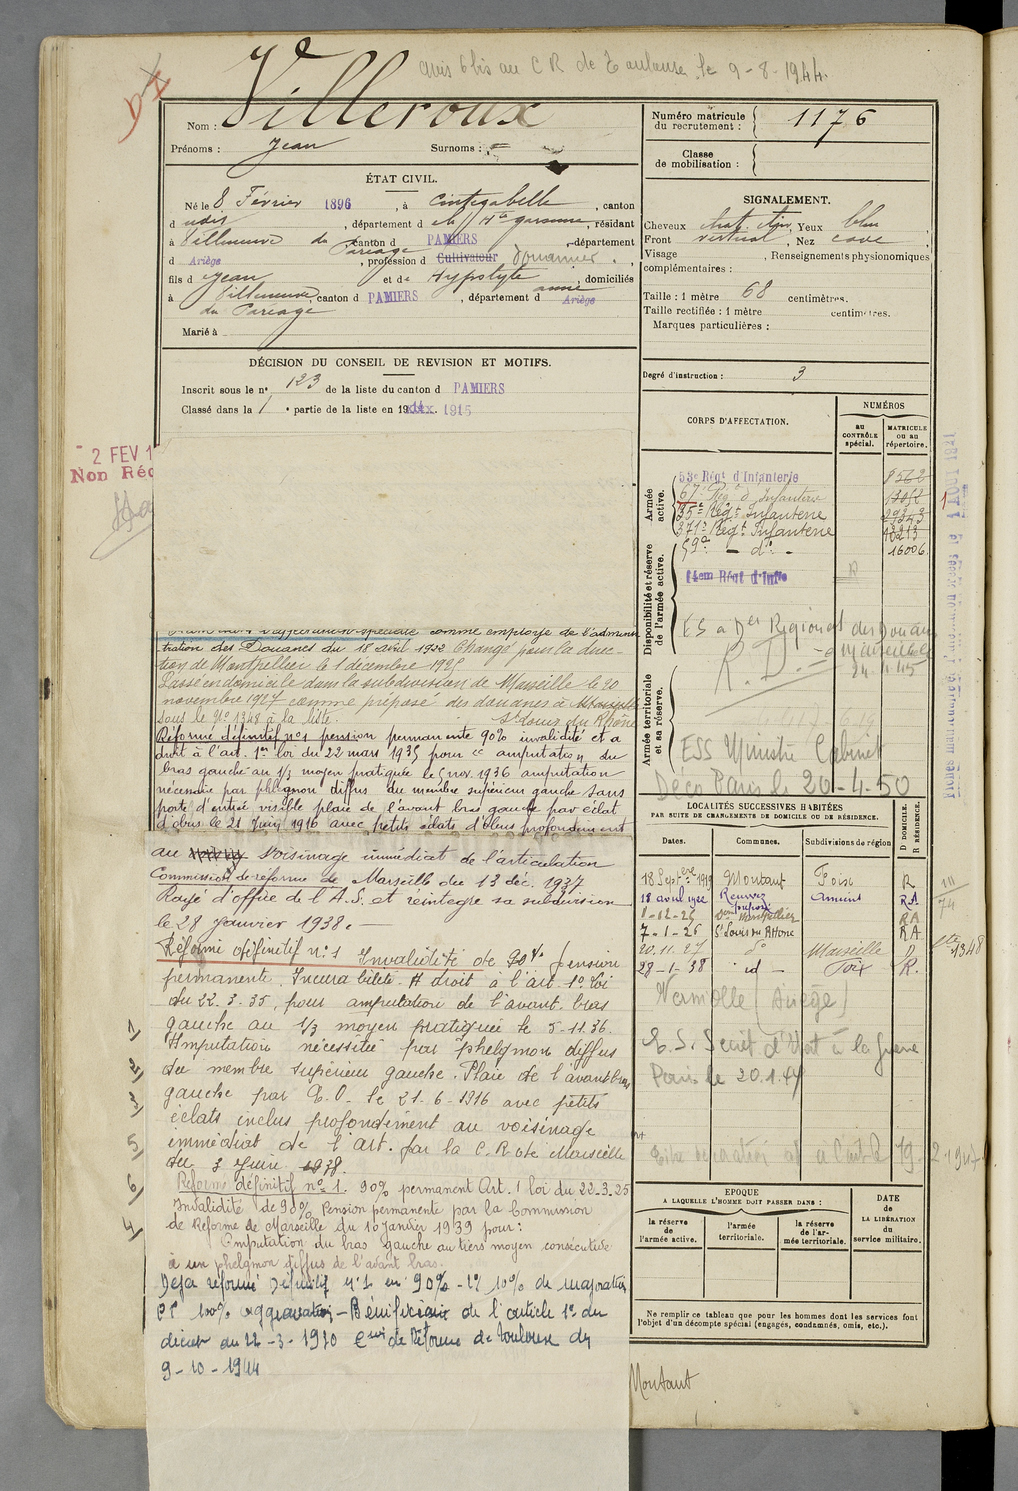 avis 6 bis au C R de Toulouse le 9-8-1944.
Nom : Villeroux
Prénoms : Jean Surnoms :
Numéro matricule du recrutement : 1176
Classe de mobilisation :
ÉTAT CIVIL.
Né le 8 Février 1896, à Cintegabelle, canton
d udis, département de la Hte garonne, résidant
à Villeneuve du Pareage canton d PAMIERS, département
d Ariège, profession d Cultivateur Douanier.
fils d Jean et de Hypolyte anne, domiciliés
à Villeneuve du Pareage, canton d PAMIERS, département d Ariège
Marié à
SIGNALEMENT.
Cheveux chat. , Yeux bleu
Front vertical, Nez cave
Visage , Renseignements physionomiques
complémentaires :
Taille : 1 mètre 68 centimètres.
Taille rectifiée : 1 mètre centimètres.
Marques particulières :
Degré d'instruction : 3
DÉCISION DU CONSEIL DE REVISION ET MOTIFS.
Inscrit sous le n° 123 de la liste du canton d PAMIERS
Classé dans la 1 e partie de la liste en 19 1915
2 FEV 1
Non Réc
CORPS D'AFFECTATION.
NUMÉROS
au CONTRÔLE spécial.
MATRICULE ou au répertoire.
Armée active.
53e Régt d'Infanterie
67e Regt d'Infanterie
35e Régt Infanterie
371e Regt Infanterie
59e — do — 16006
Disponibilité et réserve de l'armée active.
14em Régt d'Inf
R
ES a Don Régional des Douanes
R. D. Marseille
24-11-15
Armée territoriale et sa réserve.
ESS Ministre Cabinet
Déco Paris le 20-4-50
d'affectation spéciale comme employé de l'adminis
tration des Douanes du 18 avril 1922 Changé pour la direc-
tion de Montpellier le 1 décembre 1925
Passé en domicile dans la subdivision de Marseille le 20
novembre 1927 comme préposé des douanes à Marseille
sous le N° 1348 à la liste. St Louis du Rhône
Réforme définitif n°1 pension permanente 90% invalidité et a
droit à l'art. 1er loi du 22 mars 1935 pour " amputation du
bras gauche au 1/3 moyen pratiquée le 5 nov. 1936 amputation
nécessitée par phlegmon diffus du membre supérieur gauche sans
porte d'entrée visible plaie de l'avant bras gauche par éclat
d'obus le 21 Juin 1916 avec petits éclats d'obus profondément
au voisinage immédiat de l'articulation
Commission de réforme de Marseille du 13 déc. 1937
Rayé d'office de l'A.S. et réintègre sa subdivision
le 28 Janvier 1938.-
Réformé définitif n°1 Invalidité de 90% pension
permanente. Incurabilité. A droit à l'art. 1° Loi
du 22.3.35, pour amputation de l'avant bras
gauche au 1/3 moyen pratiquée le 5-11.36.
Amputation nécessitée par phelgmon diffus
du membre supérieur gauche. Plaie de l'avant bras
gauche par E.O. le 21-6-1916 avec petits
éclats inclus profondément au voisinage
immédiat de l'art. par la C.R de Marseille
du 3 Juin 1938.
Réformé définitif n°1. 90% permanent Art. 1 loi du 22.3.25
Invalidité de 90% Pension permanente par la Commission
de Réforme de Marseille du 16 Janvier 1939 pour :
Amputation du bras gauche au tiers moyen consécutive
à un phelgmon diffus de l'avant bras.
Déjà réformé Définitif n°1 en 90% - 1° 10% de majoration
PP 100% aggravation - Bénéficiair de l'article 1er du
décret du 22-3-1920 Con de Réforme de Toulouse du
9-10-1944
LOCALITÉS SUCCESSIVES HABITÉES
PAR SUITE DE CHANGEMENTS DE DOMICILE OU DE RÉSIDENCE.
D DOMICILE. R RÉSIDENCE.
Dates. Communes. Subdivisions de région
18 Septbre 1919 Montaut Foix R
18 avril 1922 Amiens RA
1-12-25 Don Montpellier RA
7-1-26 St Louis du Rhône RA
20.11.27 do Marseille D 1348
28-1-38 id - Foix R.
Varniolle (Ariège)
E.S. Secrét d'Etat à la guerre
Paris le 20.1.44
EPOQUE
A LAQUELLE L'HOMME DOIT PASSER DANS :
la réserve de l'armée active.
l'armée territoriale.
la réserve de l'armée territoriale.
DATE DE LA LIBÉRATION du service militaire.
Ne remplir ce tableau que pour les hommes dont les services font
l'objet d'un décompte spécial (engagés, condamnés, omis, etc.).
Montaut